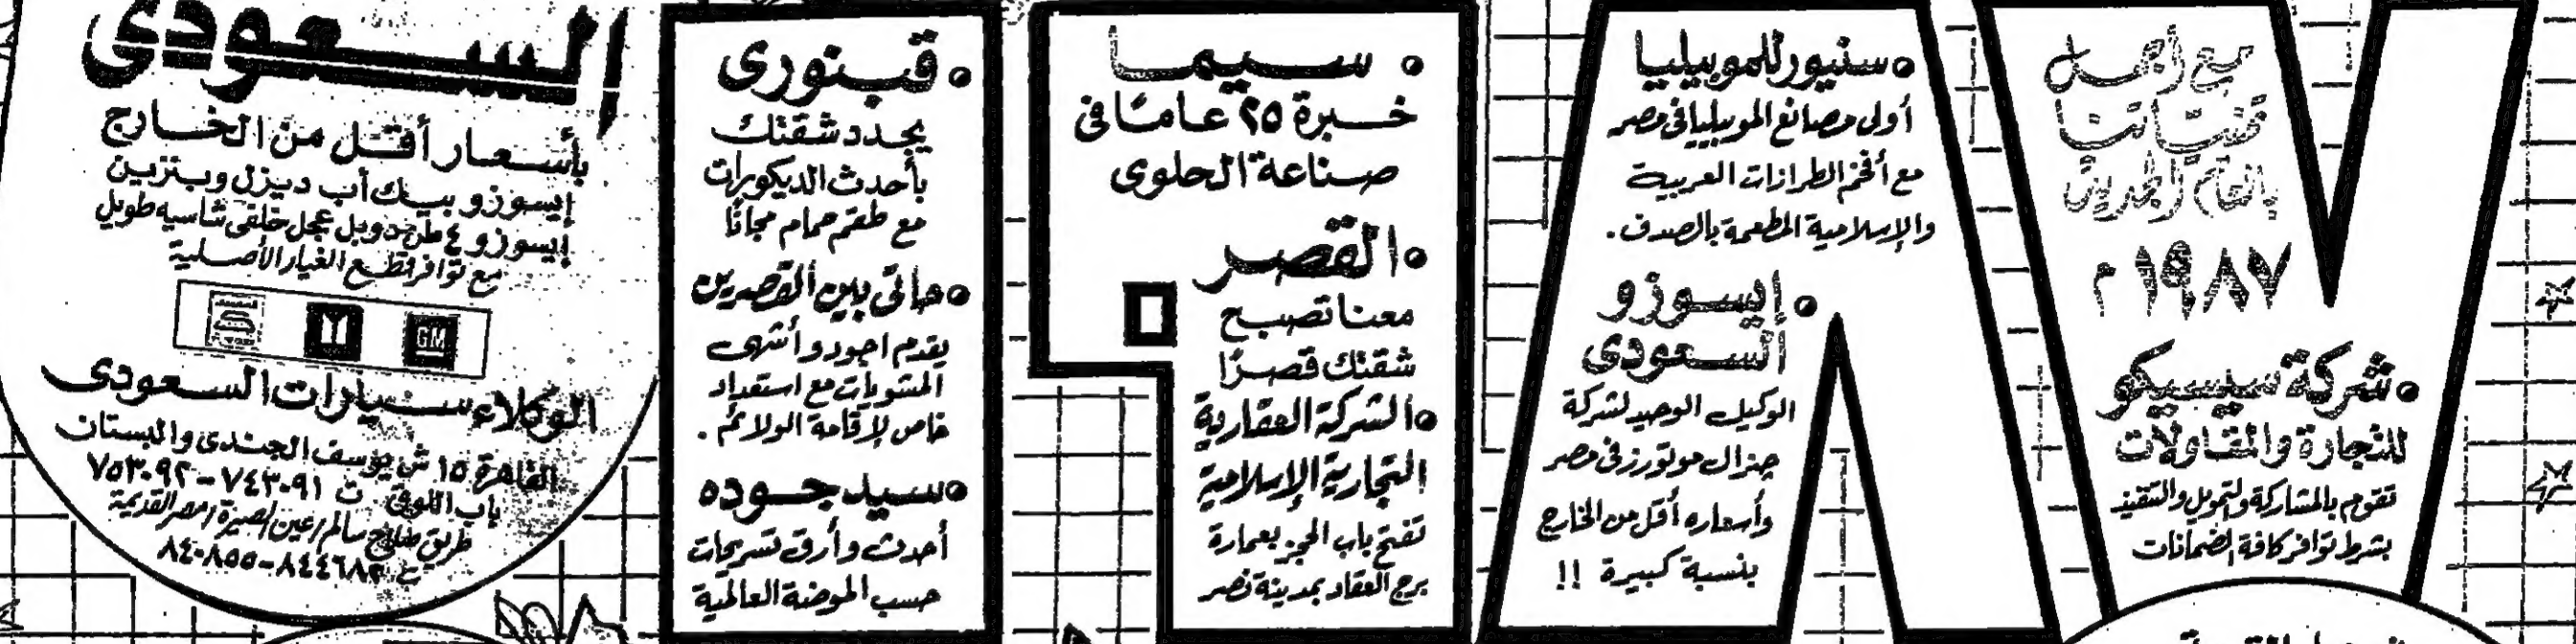 مع أجمل
تمنياتنا
بالعام الجديد
١٩٨٧ م
• شركة سيسيكو
للتجارة والمقاولات
تقوم بالمشاركة والتمويل والتنفيذ
بشرط توافر كافة الضمانات
• سنيور للموبيليا
أولى مصانع الموبيليا فى مصر
مع أفخم الطرازات العربية
والإسلامية المطعمة بالصدف.
• إيسوزو
السعودى
الوكيل الوحيد لشركة
جنرال موتورز فى مصر
وأسعاره أقل من الخارج
بنسبة كبيرة !!
• سيما
خبرة ٢٥ عامًا فى
صناعة الحلوى
• القصر
معنا تصبح
شقتك قصرًا
• الشركة العقارية
التجارية الإسلامية
تفتح باب الحجز بعمارة
برج العقاد بمدينة نصر
• قبنورى
يجدد شقتك
بأحدث الديكورات
مع طقم حمام مجانًا
• حاتى بين القصرين
يقدم اجود وأشهى
المشويات مع استعداد
خاص لإقامة الولائم.
• سيد جوده
أحدث وأرق تسريحات
حسب الموضة العالمية
السعودى
بأسعار أقل من الخارج
إيسوزو بيك أب ديزل وبنزين
إيسوزو ٤ طن دوبل عجل خلفى شاسيه طويل
مع توافر قطع الغيار الأصلية
GM
الوكلاء سيارات السعودى
القاهرة ١٥ ش يوسف الجندى والبستان
باب اللوق ت ٧٤٣٠٩١ - ٧٥٣٠٩٢
طريق صلاح سالم / عين الصيرة / مصر القديمة
ت ٨٤٤٦٨٢ - ٨٤٠٨٥٥